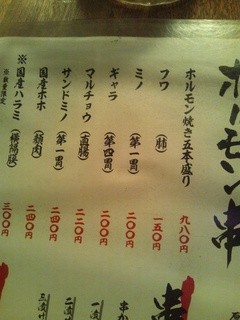 ホルモン串
ホルモン焼き五本盛り 九八〇円
フワ(肺) 一五〇円
ミノ(第一胃) 二〇〇円
ギャラ(第四胃) 二〇〇円
マルチョウ(直腸) 二二〇円
サンドミノ(第一胃) 二四〇円
国産ホホ(頬肉) 二四〇円
※国産ハラミ(横隔膜) 三〇〇円
※数量限定
串